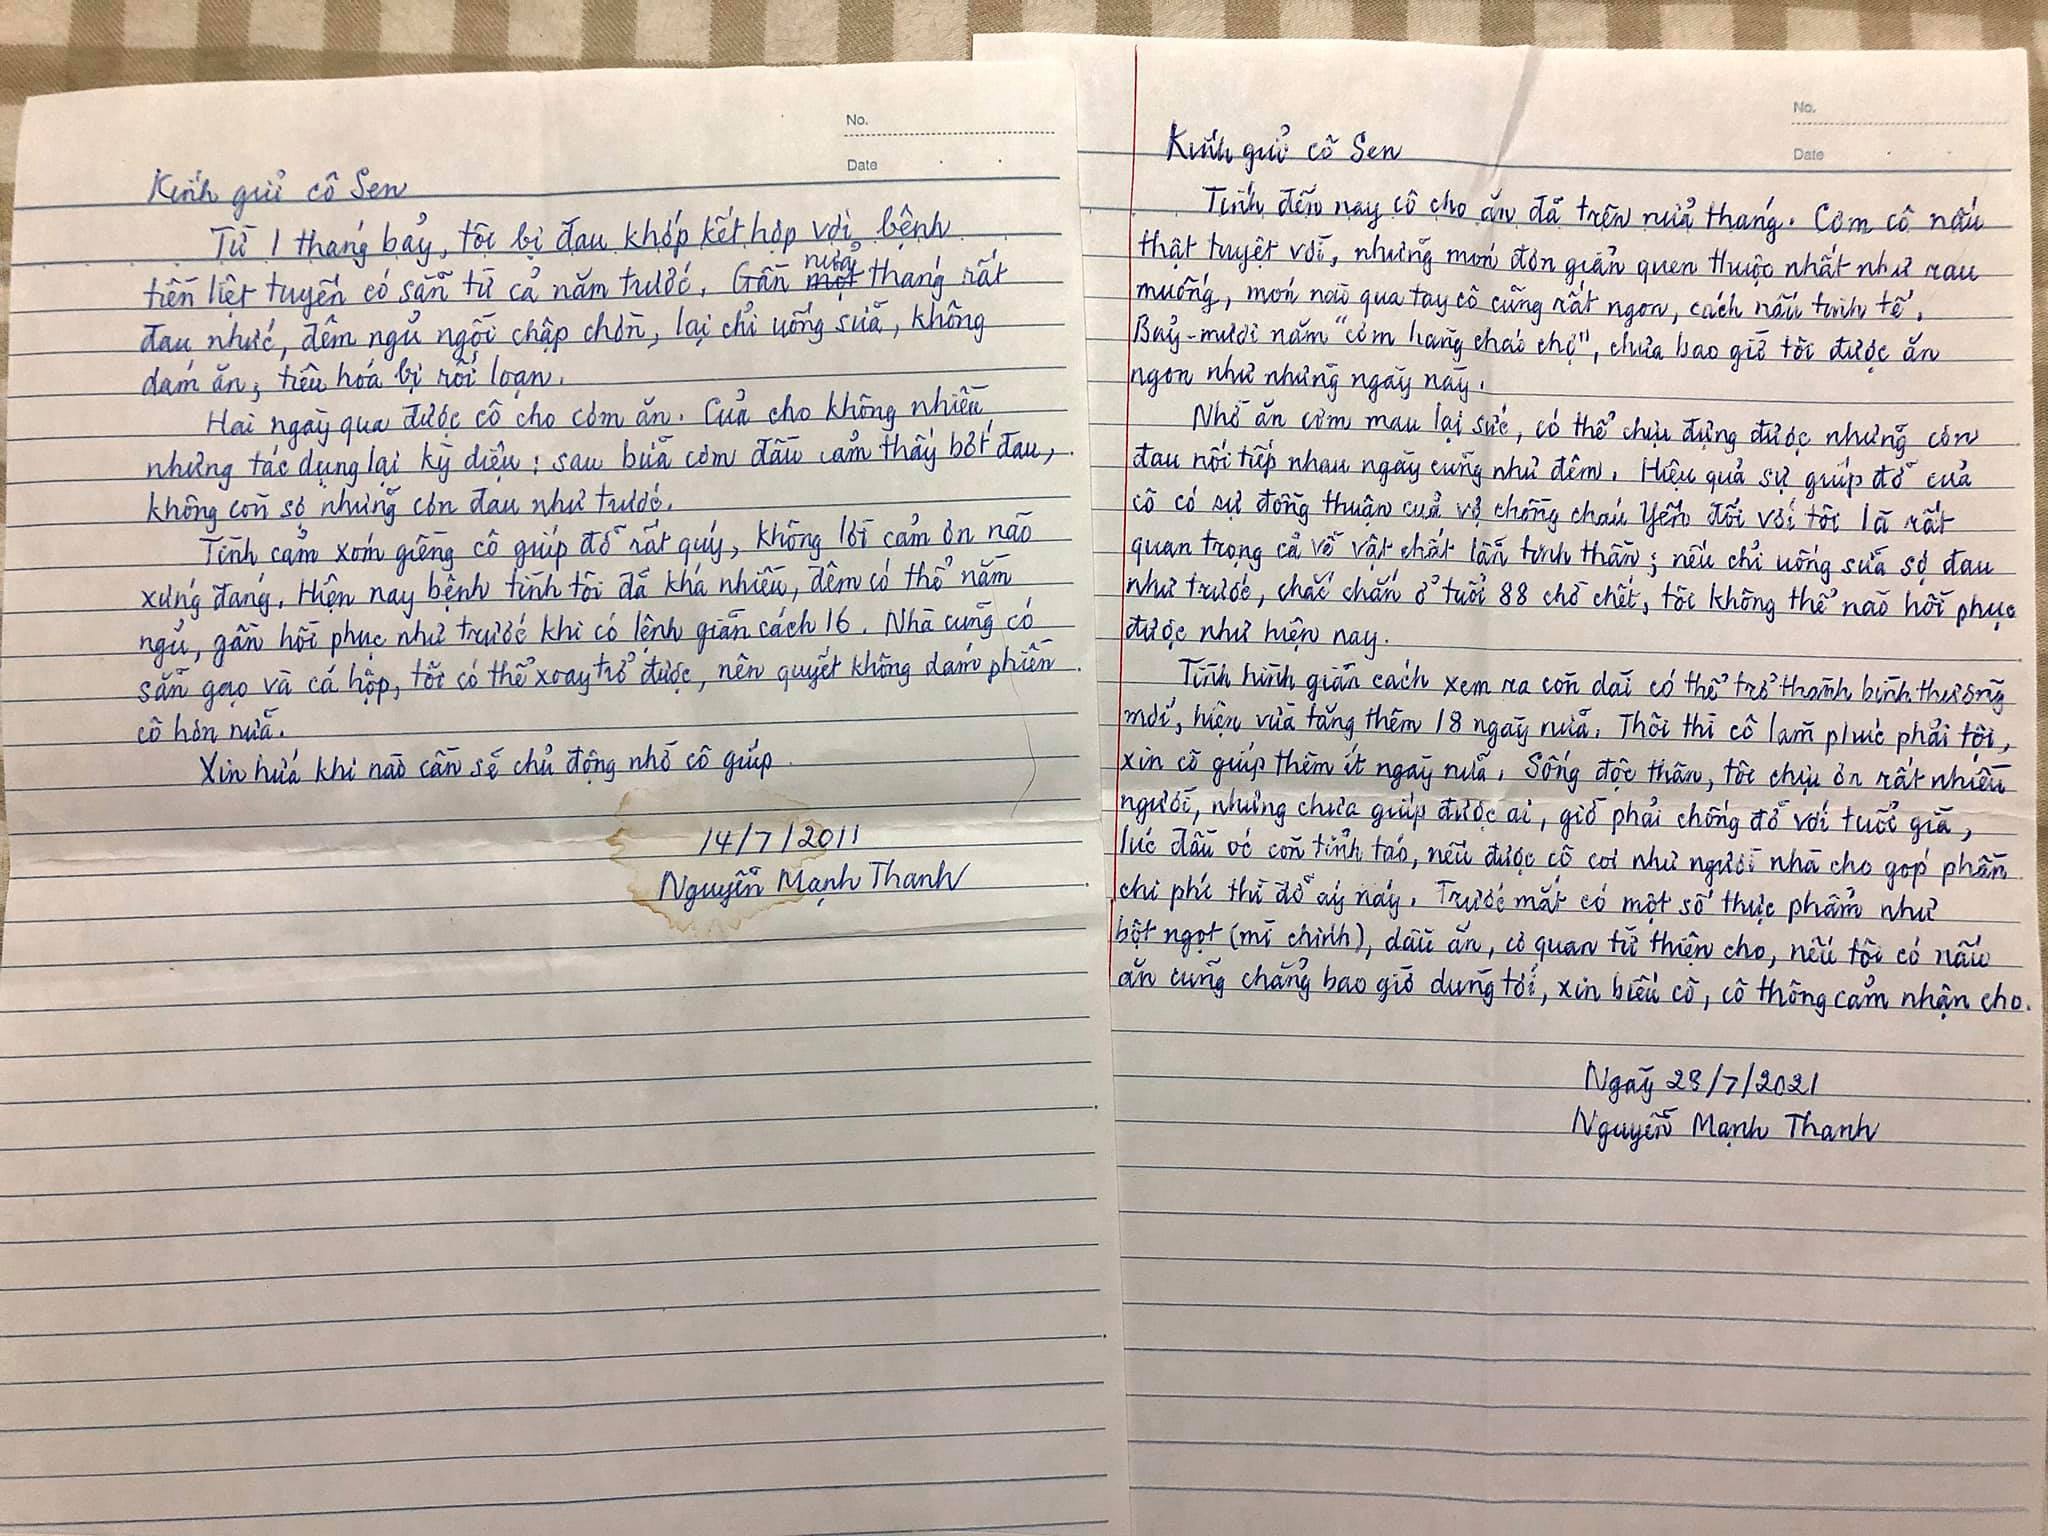 No.
Date
Kính gửi cô Sen
Từ 1 tháng bảy, tôi bị đau khớp kết hợp với bệnh
tiền liệt tuyến có sẵn từ cả năm trước. Gần một nửa tháng rất
đau nhức, đêm ngủ ngồi chập chờn, lại chỉ uống sữa, không
dám ăn, tiêu hóa bị rối loạn.
Hai ngày qua được cô cho cơm ăn. Của cho không nhiều
nhưng tác dụng lại kỳ diệu: sau bữa cơm đầu cảm thấy bớt đau,
không còn sợ những cơn đau như trước.
Tình cảm xóm giềng cô giúp đỡ rất quý, không lời cảm ơn nào
xứng đáng. Hiện nay bệnh tình tôi đã khá nhiều, đêm có thể nằm
ngủ, gần hồi phục như trước khi có lệnh giãn cách 16. Nhà cũng có
sẵn gạo và cá hộp, tôi có thể xoay trở được, nên quyết không dám phiền
cô hơn nữa.
Xin hứa khi nào cần sẽ chủ động nhờ cô giúp.
14/7/2011
Nguyễn Mạnh Thanh
No.
Date
Kính gửi cô Sen
Tính đến nay cô cho ăn đã trên nửa tháng. Cơm cô nấu
thật tuyệt vời, những món đơn giản quen thuộc nhất như rau
muống, món nào qua tay cô cũng rất ngon, cách nấu tinh tế.
Bảy-mươi năm "cơm hàng cháo chợ", chưa bao giờ tôi được ăn
ngon như những ngày này.
Nhờ ăn cơm mau lại sức, có thể chịu đựng được những cơn
đau nối tiếp nhau ngày cũng như đêm. Hiệu quả sự giúp đỡ của
cô có sự đồng thuận của vợ chồng cháu Yến đối với tôi là rất
quan trọng cả về vật chất lẫn tinh thần; nếu chỉ uống sữa sợ đau
như trước, chắc chắn ở tuổi 88 chờ chết, tôi không thể nào hồi phục
được như hiện nay.
Tình hình giãn cách xem ra còn dài có thể trở thành bình thường
mới, hiện vừa tăng thêm 18 ngày nữa. Thôi thì cô làm phúc phải tội,
xin cô giúp thêm ít ngày nữa. Sống độc thân, tôi chịu ơn rất nhiều
người, nhưng chưa giúp được ai, giờ phải chống đỡ với tuổi già,
lúc đầu óc còn tỉnh táo, nếu được cô coi như người nhà cho góp phần
chi phí thì đỡ áy náy. Trước mắt có một số thực phẩm như
bột ngọt (mì chính), dầu ăn, cơ quan từ thiện cho, nếu tôi có nấu
ăn cũng chẳng bao giờ dùng tới, xin biếu cô, cô thông cảm nhận cho.
Ngày 28/7/2021
Nguyễn Mạnh Thanh